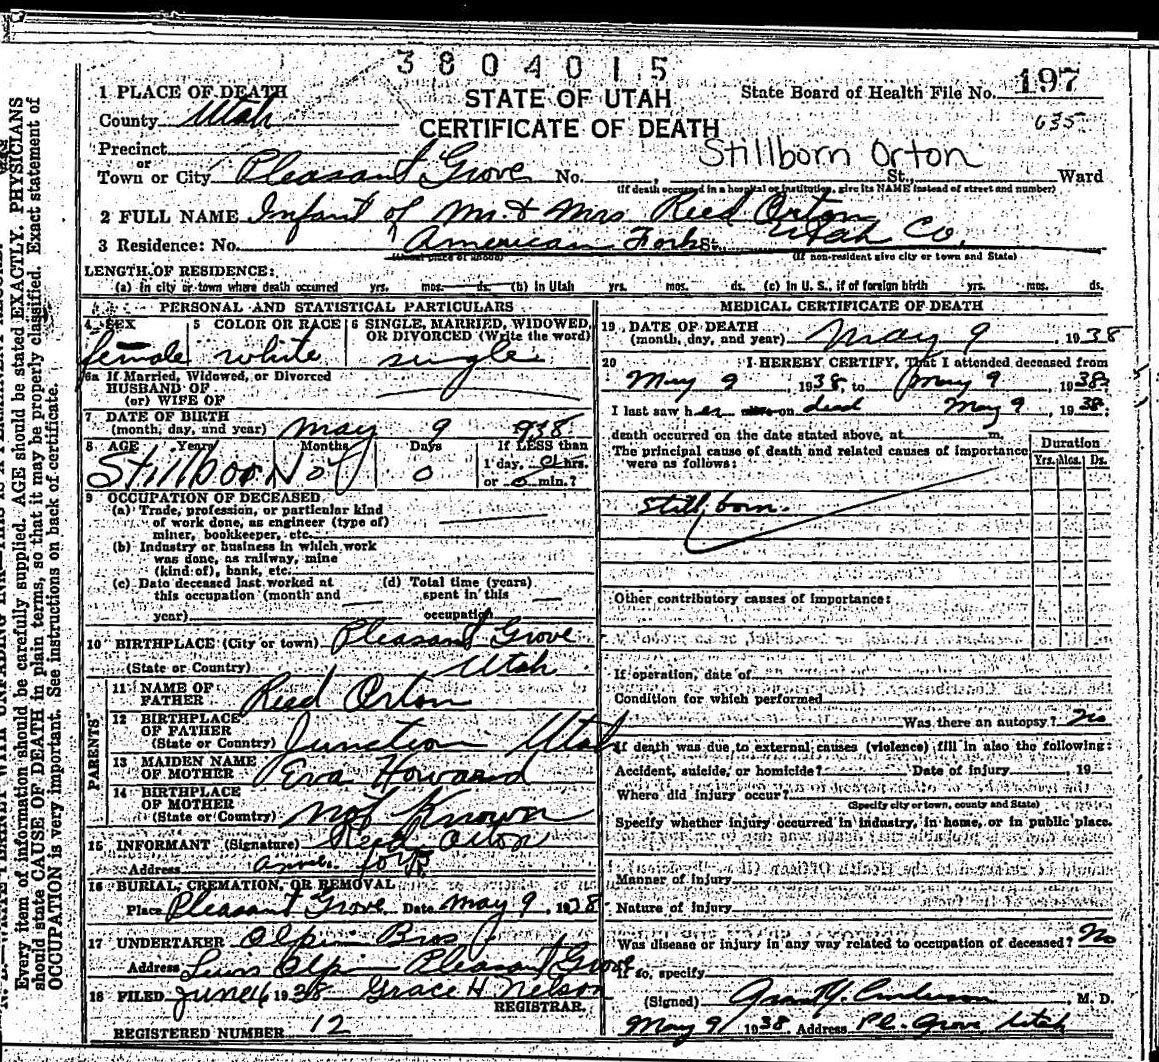 3804015
1 PLACE OF DEATH
STATE OF UTAH
State Board of Health File No. 197
County Utah
CERTIFICATE OF DEATH
635
Precinct
Stillborn Orton
or
Town or City Pleasant Grove No. , St., Ward
(If death occurred in a hospital or institution, give its NAME instead of street and number)
2 FULL NAME Infant of Mr. & Mrs Reed Orton
3 Residence: No. American Fork St. Utah Co.
(Usual place of abode) (If non-resident give city or town and State)
LENGTH OF RESIDENCE:
(a) In city or town where death occurred yrs. mos. ds. (b) In Utah yrs. mos. ds. (c) In U. S., if of foreign birth yrs. mos. ds.
PERSONAL AND STATISTICAL PARTICULARS
4 SEX 5 COLOR OR RACE 6 SINGLE, MARRIED, WIDOWED,
OR DIVORCED (Write the word)
female white single
6a If Married, Widowed, or Divorced
HUSBAND OF
(or) WIFE OF
7 DATE OF BIRTH
(month, day, and year) May 9 938
8 AGE Years Months Days If LESS than
1 day, 0 hrs.
Stillborn 0 or 0 min.?
9 OCCUPATION OF DECEASED
(a) Trade, profession, or particular kind
of work done, as engineer (type of)
miner, bookkeeper, etc.
(b) Industry or business in which work
was done, as railway, mine
(kind of), bank, etc.
(c) Date deceased last worked at (d) Total time (years)
this occupation (month and spent in this
year) occupation
10 BIRTHPLACE (City or town) Pleasant Grove
(State or Country) Utah
PARENTS
11 NAME OF
FATHER Reed Orton
12 BIRTHPLACE
OF FATHER
(State or Country) Junction Utah
13 MAIDEN NAME
OF MOTHER Eva Howard
14 BIRTHPLACE
OF MOTHER
(State or Country) not Known
15 INFORMANT (Signature) Reed Orton
Address Amer. Fork
16 BURIAL, CREMATION, OR REMOVAL
Place Pleasant Grove Date May 9, 1938
17 UNDERTAKER Olpin Bros
Address Pleasant Grove
18 FILED June 16 1938 Grace H Nelson
REGISTRAR.
REGISTERED NUMBER 12
MEDICAL CERTIFICATE OF DEATH
19 DATE OF DEATH
(month, day, and year) May 9, 1938
20 I HEREBY CERTIFY, That I attended deceased from
May 9, 1938, to May 9, 1938
I last saw her alive on dead May 9, 1938;
death occurred on the date stated above, at m.
The principal cause of death and related causes of importance
were as follows:
Duration
Yrs. Mos. Ds.
Still born.
Other contributory causes of importance:
If operation, date of
Condition for which performed
Was there an autopsy? No
If death was due to external causes (violence) fill in also the following:
Accident, suicide, or homicide? Date of injury , 19
Where did injury occur?
(Specify city or town, county and State)
Specify whether injury occurred in industry, in home, or in public place.
Manner of injury
Nature of injury
Was disease or injury in any way related to occupation of deceased? No
If so, specify
(Signed) Grant Y. Anderson, M. D.
May 9, 1938 Address Pl. Grove, Utah
Every item of information should be carefully supplied. AGE should be stated EXACTLY. PHYSICIANS
should state CAUSE OF DEATH in plain terms, so that it may be properly classified. Exact statement of
OCCUPATION is very important. See instructions on back of certificate.